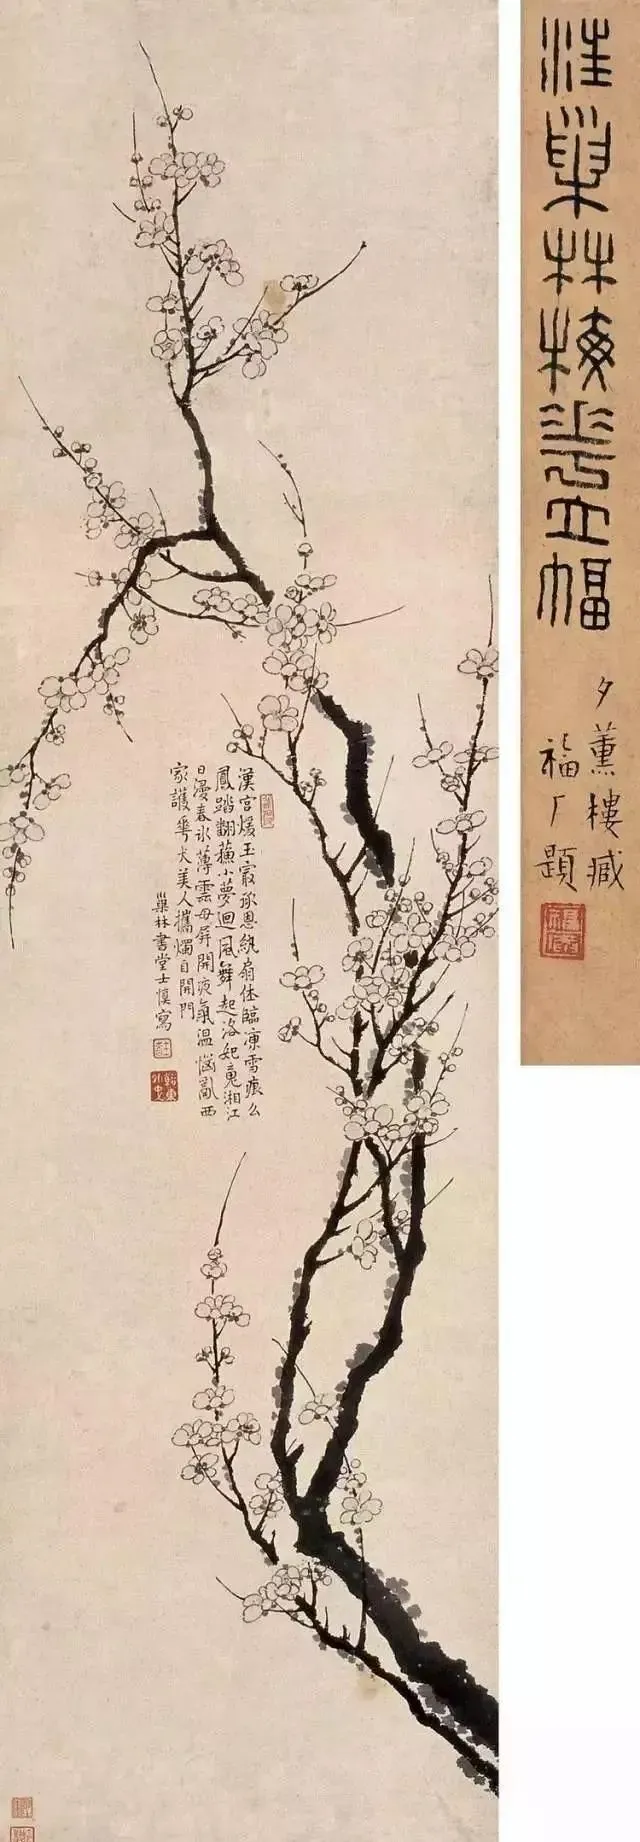 汪巢林梅華立幅
夕薰樓藏
福厂題
漢宮煖玉最承恩紈扇休臨凍雪痕么
鳳踏翻蘓小夢迴風舞起洛妃魂湘江
日漫春冰薄雲母屏開夜氣溫惱亂西
家護華犬美人攜燭自開門
巢林書堂士慎寫